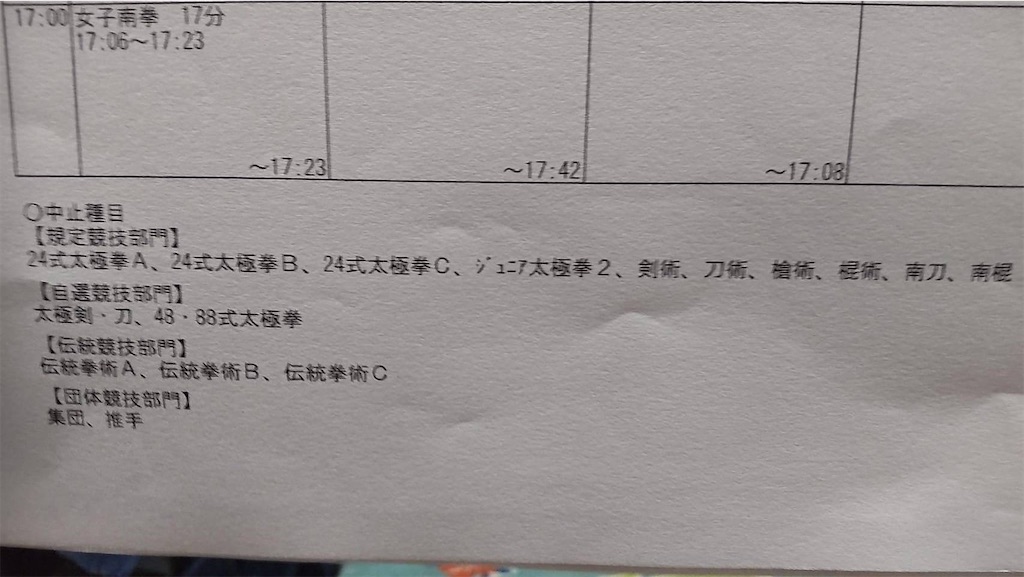 17:00 女子南拳 17分
17:06～17:23
～17:23 ～17:42 ～17:08
○中止種目
【規定競技部門】
24式太極拳A、24式太極拳B、24式太極拳C、ｼﾞｭﾆｱ太極拳2、剣術、刀術、槍術、棍術、南刀、南棍
【自選競技部門】
太極剣・刀、48・88式太極拳
【伝統競技部門】
伝統拳術A、伝統拳術B、伝統拳術C
【団体競技部門】
集団、推手